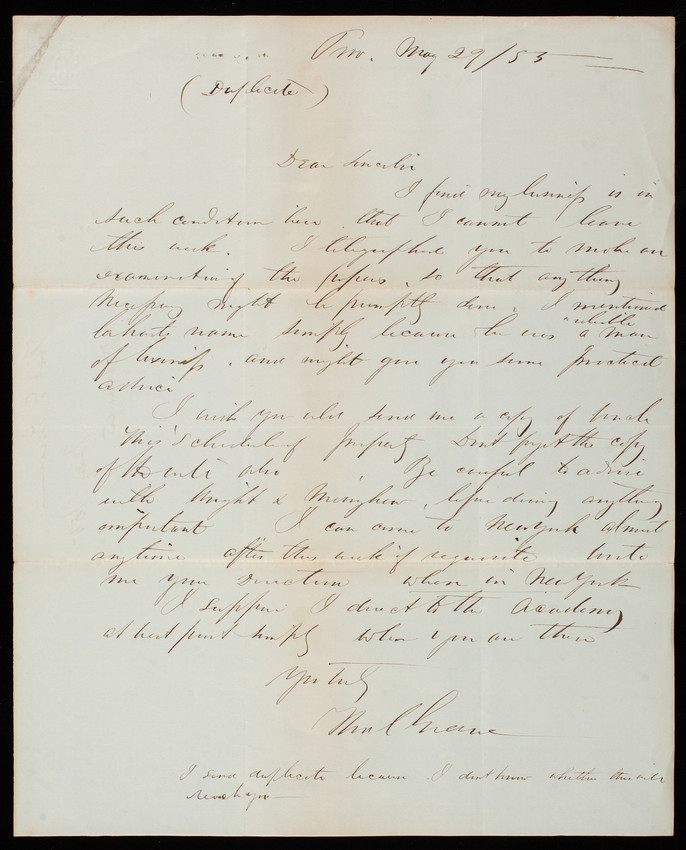 Prov. May 29/53
(Duplicate)
Dear Lincoln
I find my business is in
such condition here that I cannot leave
this week. I telegraphed you to make an
examination of the papers, so that anything
necessary might be promptly done. I mentioned
name simply because he was a "reliable" man
of business, and might give you some practical
advice
I wish you would send me a copy of Uncle
This' Schedule of Property Dont forget the copy
of also Be careful to advise
with Wright & before doing anything
important I can come to New York almost
anytime after this week if requisite write
me your Direction when in New York
I suppose I direct to the Academy
at West point simply when you are there
Yrs truly
Thos C Greene
I send duplicate because I dont know whether this will
reach you